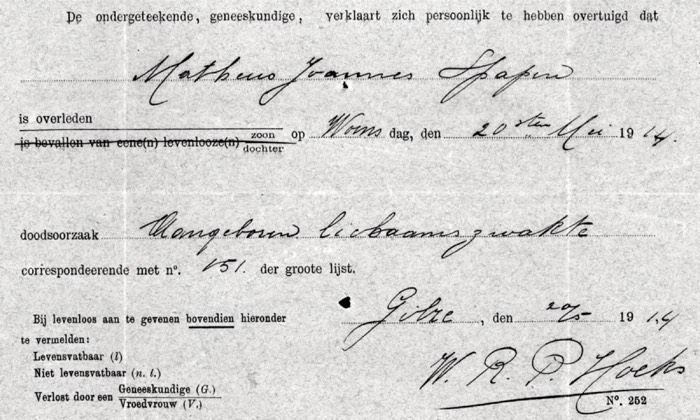 De ondergeteekende, geneeskundige, verklaart zich persoonlijk te hebben overtuigd dat
Matheus Joannes Spapen
is overleden
is bevallen van eene(n) levenlooze(n) zoon dochter op Woensdag, den 20sten Mei 1914.
doodsoorzaak Aangeboren lichaamszwakte
correspondeerende met n°. 151. der groote lijst.
Bij levenloos aan te gevenen bovendien hieronder
te vermelden:
Gilze, den 20/5 1914
Levensvatbaar (l)
Niet levensvatbaar (n. l.)
Verlost door een Geneeskundige (G.) Vroedvrouw (V.)
W. R. P. Hoeks
N°. 252